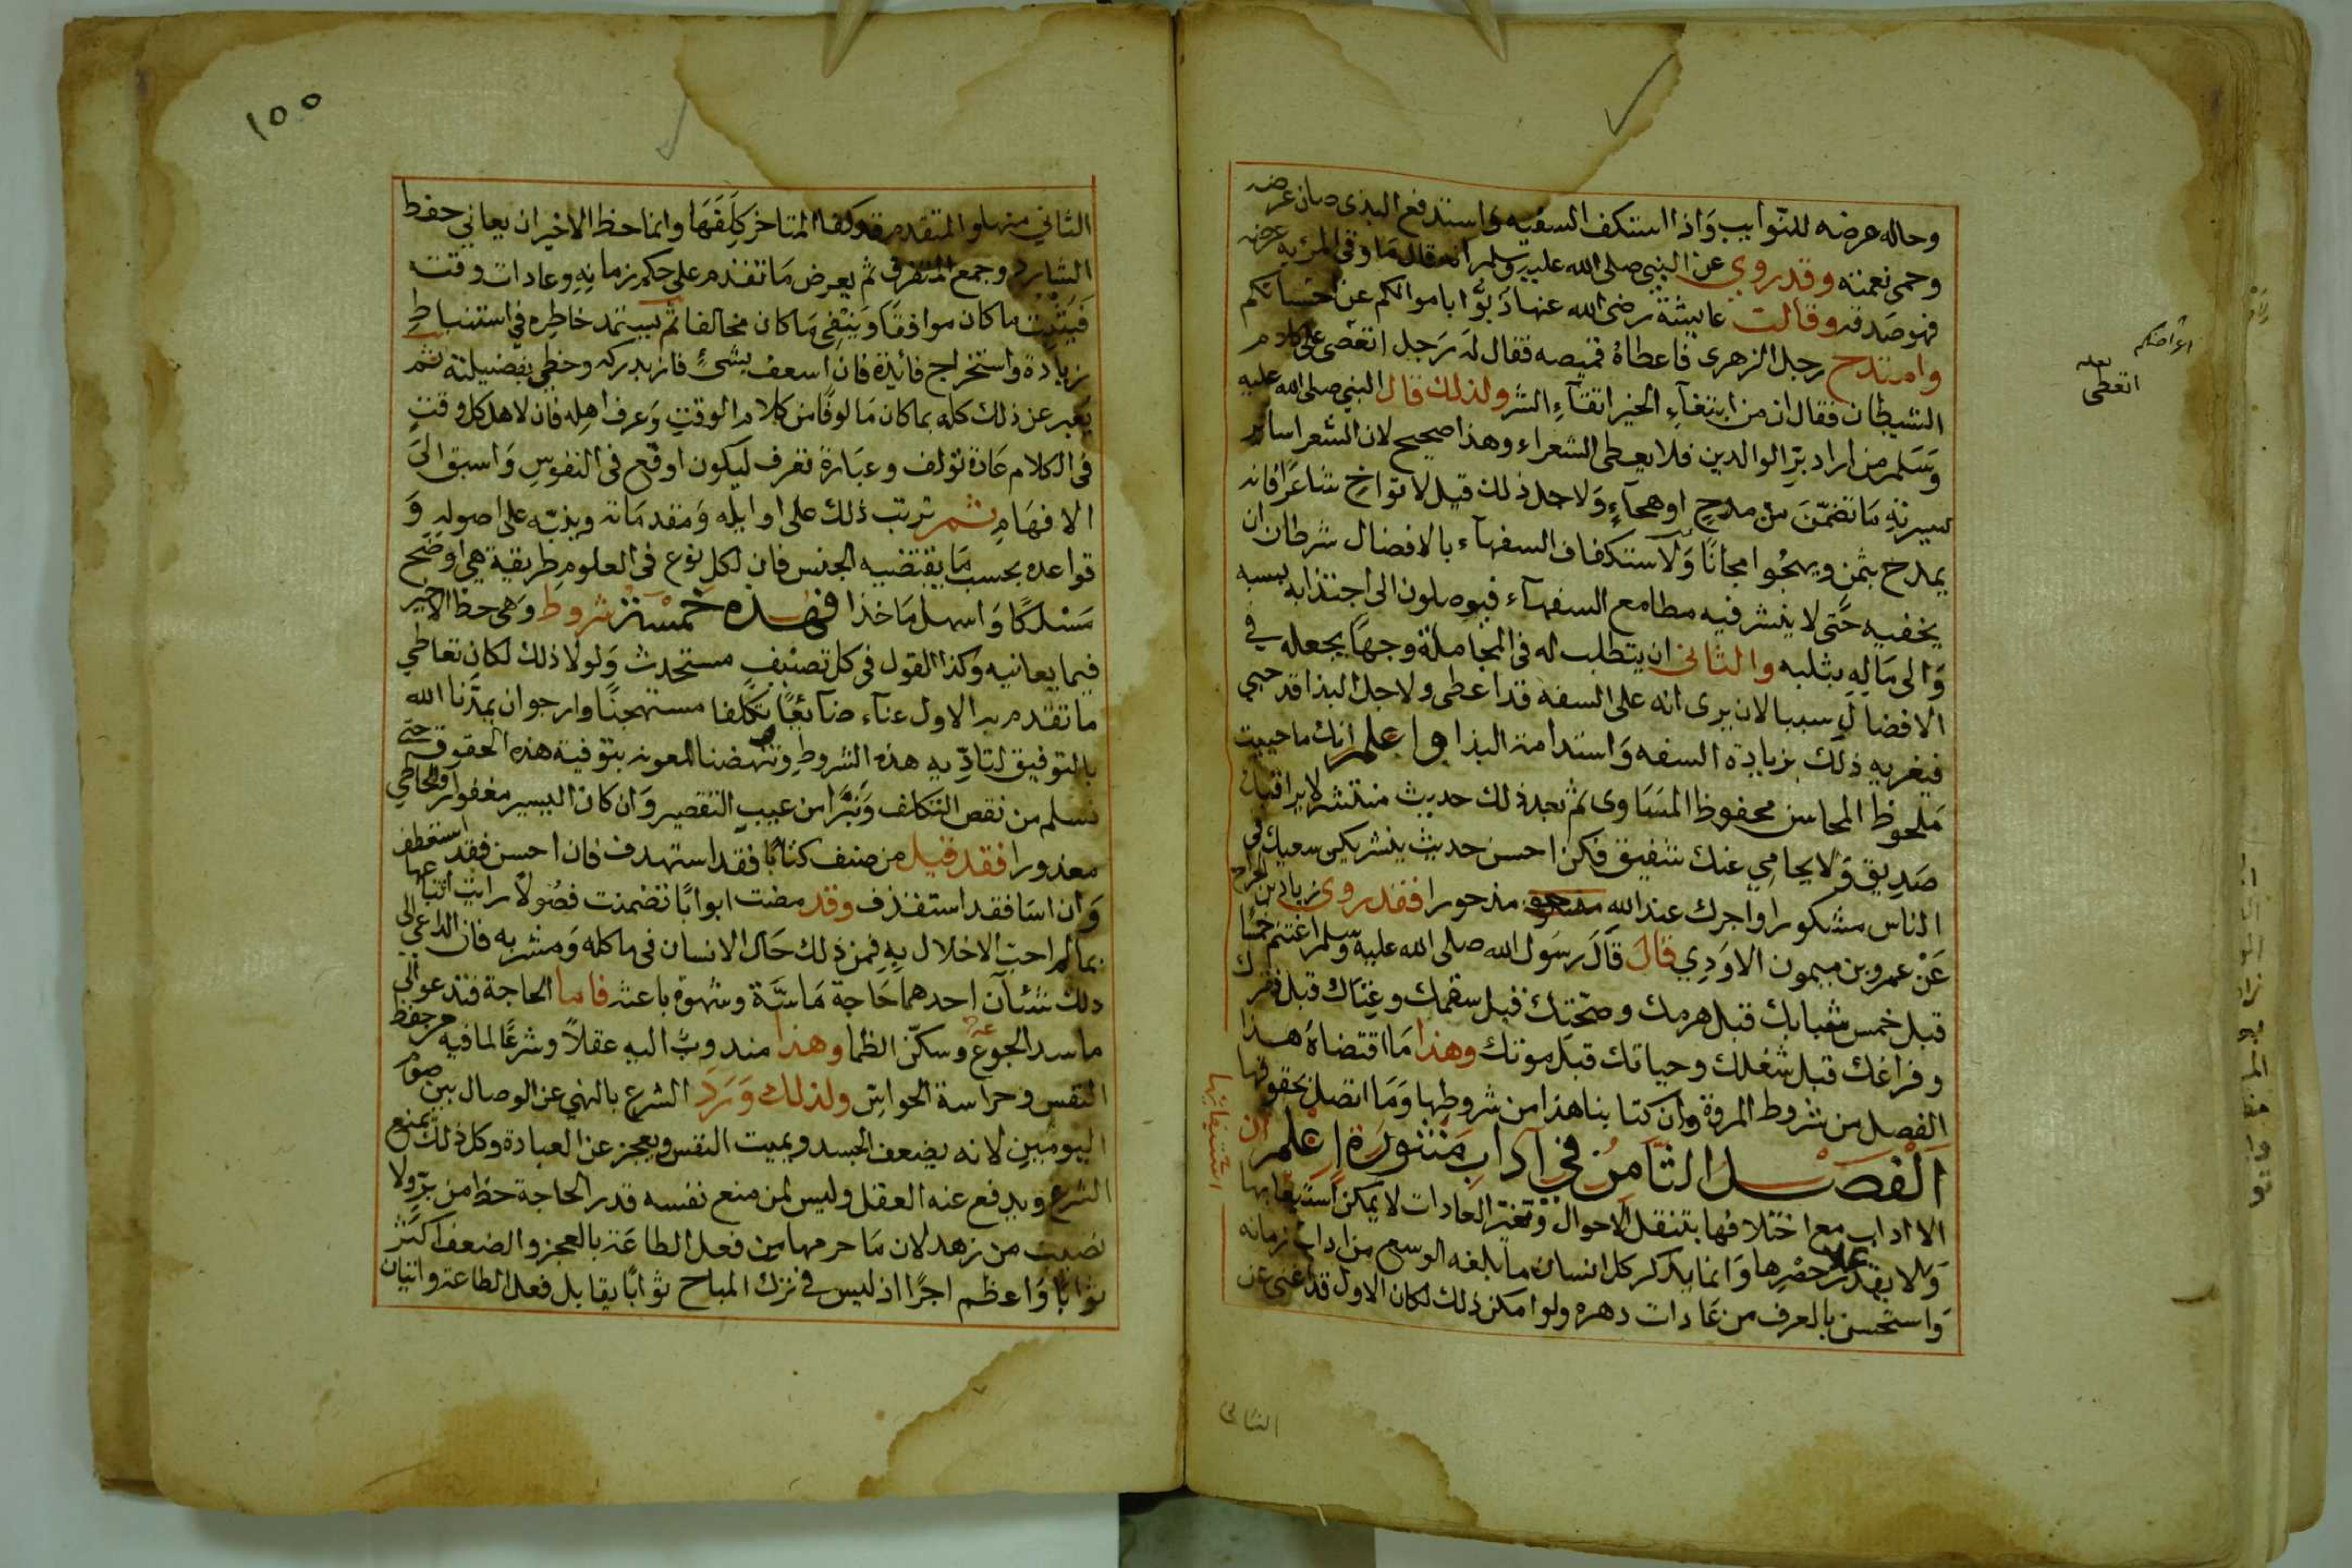 وحاله عرضه للنوايب وَاذا استكف السفيه وَاستدفع البذى صان عرضه
وحمى نعمته وقد روي عن النبي صلى الله عليه وسلم انه قال مَا وقى المرء به عرضه
فهو صَدقه وقالت عايشة رضى الله عنها ذبوا باموالكم عن احسابكم
وامتدح رجل الزهرى فاعطاهُ قميصه فقال لهَ رَجل اتعصى على كلام
الشيطان فقال ان من ابتغآءِ الخير اتقآءِ الشر ولذلك قال النبي صلى الله عليه
وَسَلم من اراد برّ الوالدين فلا يعطى الشعراء وهذا صحيح لان الشعر اساير
يسيرته مَا تضمّنَ من مدحٍ او هجآءٍ وَلاجل ذلك قيل لا تواخِ شاعرًا فانه
يمدح بثمن ويهجُو امجانًا وَلاستكفاف السفهآء بالافضال شرطان ان
يخفيه حَتى لا ينشر فيه مطامع السفهآء فيوصلون الى اجتذابه بسبه
وَالى مَالهِ بثلبه والثانى ان يتطلب له فى المجَاملة وجهًا يجعله في
الافضالِ سببا لان يرى انه على السفه قد اعطى ولاجل البذا قد حبي
فيغريه ذلك بزيادة السفه وَاستدامة البذا واعلم انك ما حييت
مَلحوظ المحاسن محفوظ المسَاوى ثم بعد ذلك حديث منتشر لا يراقبك
صَدِيق وَلا يحامي عنك شفيق فكن احسن حديث ينشر يكن سعيك في
الناس مشكورا واجرك عند الله مذحورا فقد روى زياد بن الجراح
عَنْ عمرو بن ميمون الاوَدِي قال قَالَ رسَول الله صلى الله عليه وسلم اغتنم خمسًا
قبل خمس شبابك قبل هرمك وصحّتِك قبل سقمك وغِنَاك قبل فقرك
وفراغك قبل شغلك وحياتك قبل موتك وهذا مَا اقتضاهُ هذا
الفصل من شروط المروة وان كتابنا هذا من شروطها وَمَا اتصل بحقوقها
الفصل الثامن في آداب منثورة اعلم ان
الاداب مع اختلافها بتنقل الاحوال وتغير العادات لا يمكن استيعابها
وَلا يقدر على حصْرِها وَانما يذكر كل انسان ما بلغه الوسع من اداب زمانه
وَاستحسن بالعرف من عَادات دهره ولو امكن ذلك لكان الاول قد اغنى عن
الثانى
اعراضكم
لعله
اتعطى
استيفائها
١٥٥
الثاني منها والمتقدم قد كفا المتاخر كِلَفَهَا وانما حظ الاخير ان يعاني حفظ
الشارد وجمع المتفرق ثم يعرض مَا تقدم على حكم زمانهِ وعادات وقته
فَيَثْبِت ما كان موافقًا وَينْفِى مَا كان مخالفا ثم يستمد خاطره في استنباط
زيادة واستخراج فائدة فان اسعف بشئٍ فاز بدركه وحظى بفضيلته ثم
يَعبر عن ذلك كله بما كان مَالوفًا من كلام الوقتِ وَعرف اهله فان لاهل كل وقتٍ
فى الكلام عَادة تولف وعبَارة تعرف ليكون اوقع فى النفوسِ وَاسبق الىَ
الافهَام ثم ترتب ذلك على اوايله وَمقدمَاته وبذبّه على اصوله وَ
قواعده بحسب مَا يقتضيه الجنس فان لكل نوع فى العلومِ طريقية هي اوضح
مَسْلكًا وَاسهل مَاخذا فهذه خمسة شروط وَهى حظ الاخير
فيما يعانيه وكذا القول فى كل تصنيفٍ مستحدث وَلولا ذلك لكان تعاطي
ما تقدم به الاول عنآء ضآئعًا وتكلفا مستهجنًا وارجو ان يمدَّنا الله
بالتوفيق لتادّيه هذه الشروطِ وتنهضنا المعونه بتوفية هذه الحقوق حتى
نسلم من نقص التكلف وَنَبرَّا من عيب التقصير وَان كان اليسير مغفورا والخاطي
معذورا فقد قيل من صنف كتابًا فقد استهدف فان احسن فقد استعطف
وَان اسَا فقد استقذف وقد مضت ابوابًا تضمنت فصُولاً رايت اتباعها
بما لم احب الاخلال بِهِ فمن ذلك حَال الانسان فى ماكله وَمشربه فان الداعي الى
ذلك شئآن احدهما حَاجة مَاسَّة وشهوة باعثه فاما الحاجة فتدعو الى
ما سد الجوع وسكّن الظما وهذا مندوبٌ اليه عقلاً وشرعًا لما فيه من حفظ
النفس وحراسة الحواسّ ولذلك وَرَدَ الشرع بالنهي عن الوصال بين صوم
اليومَين لانه يضعف الجسد ويميت النفس ويعجز عن العبادة وكل ذلك يمنع
الشرع ويدفع عنه العقل وليس لمن منع نفسه قدر الحاجة حظا من برٍّ ولا
نصيب من زهد لان مَا حرمها من فعل الطاعَة بالعجز والضعف اكثر
ثوابًا وَاعظم اجرًا اذ ليس في ترك المباح ثوابًا يقابل فعل الطاعة واتيان